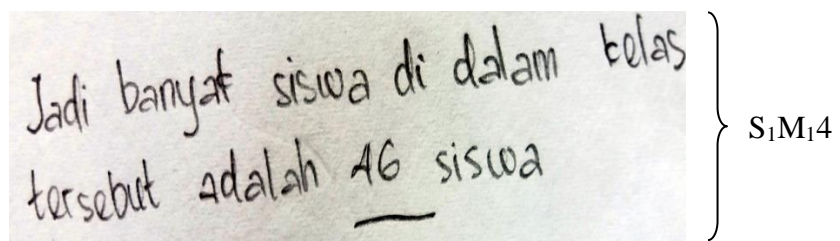 Jadi banyak siswa di dalam kelas
tersebut adalah 46 siswa
S₁M₁4